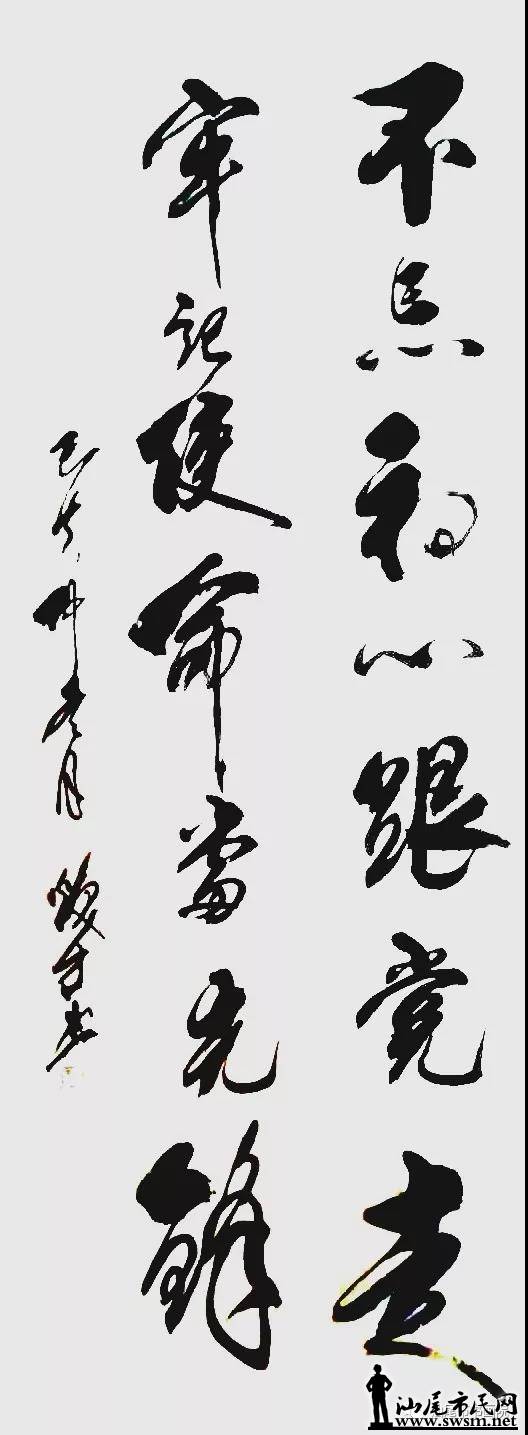 不忘初心跟党走
牢记使命当先锋
汕尾市民网
www.swsm.net